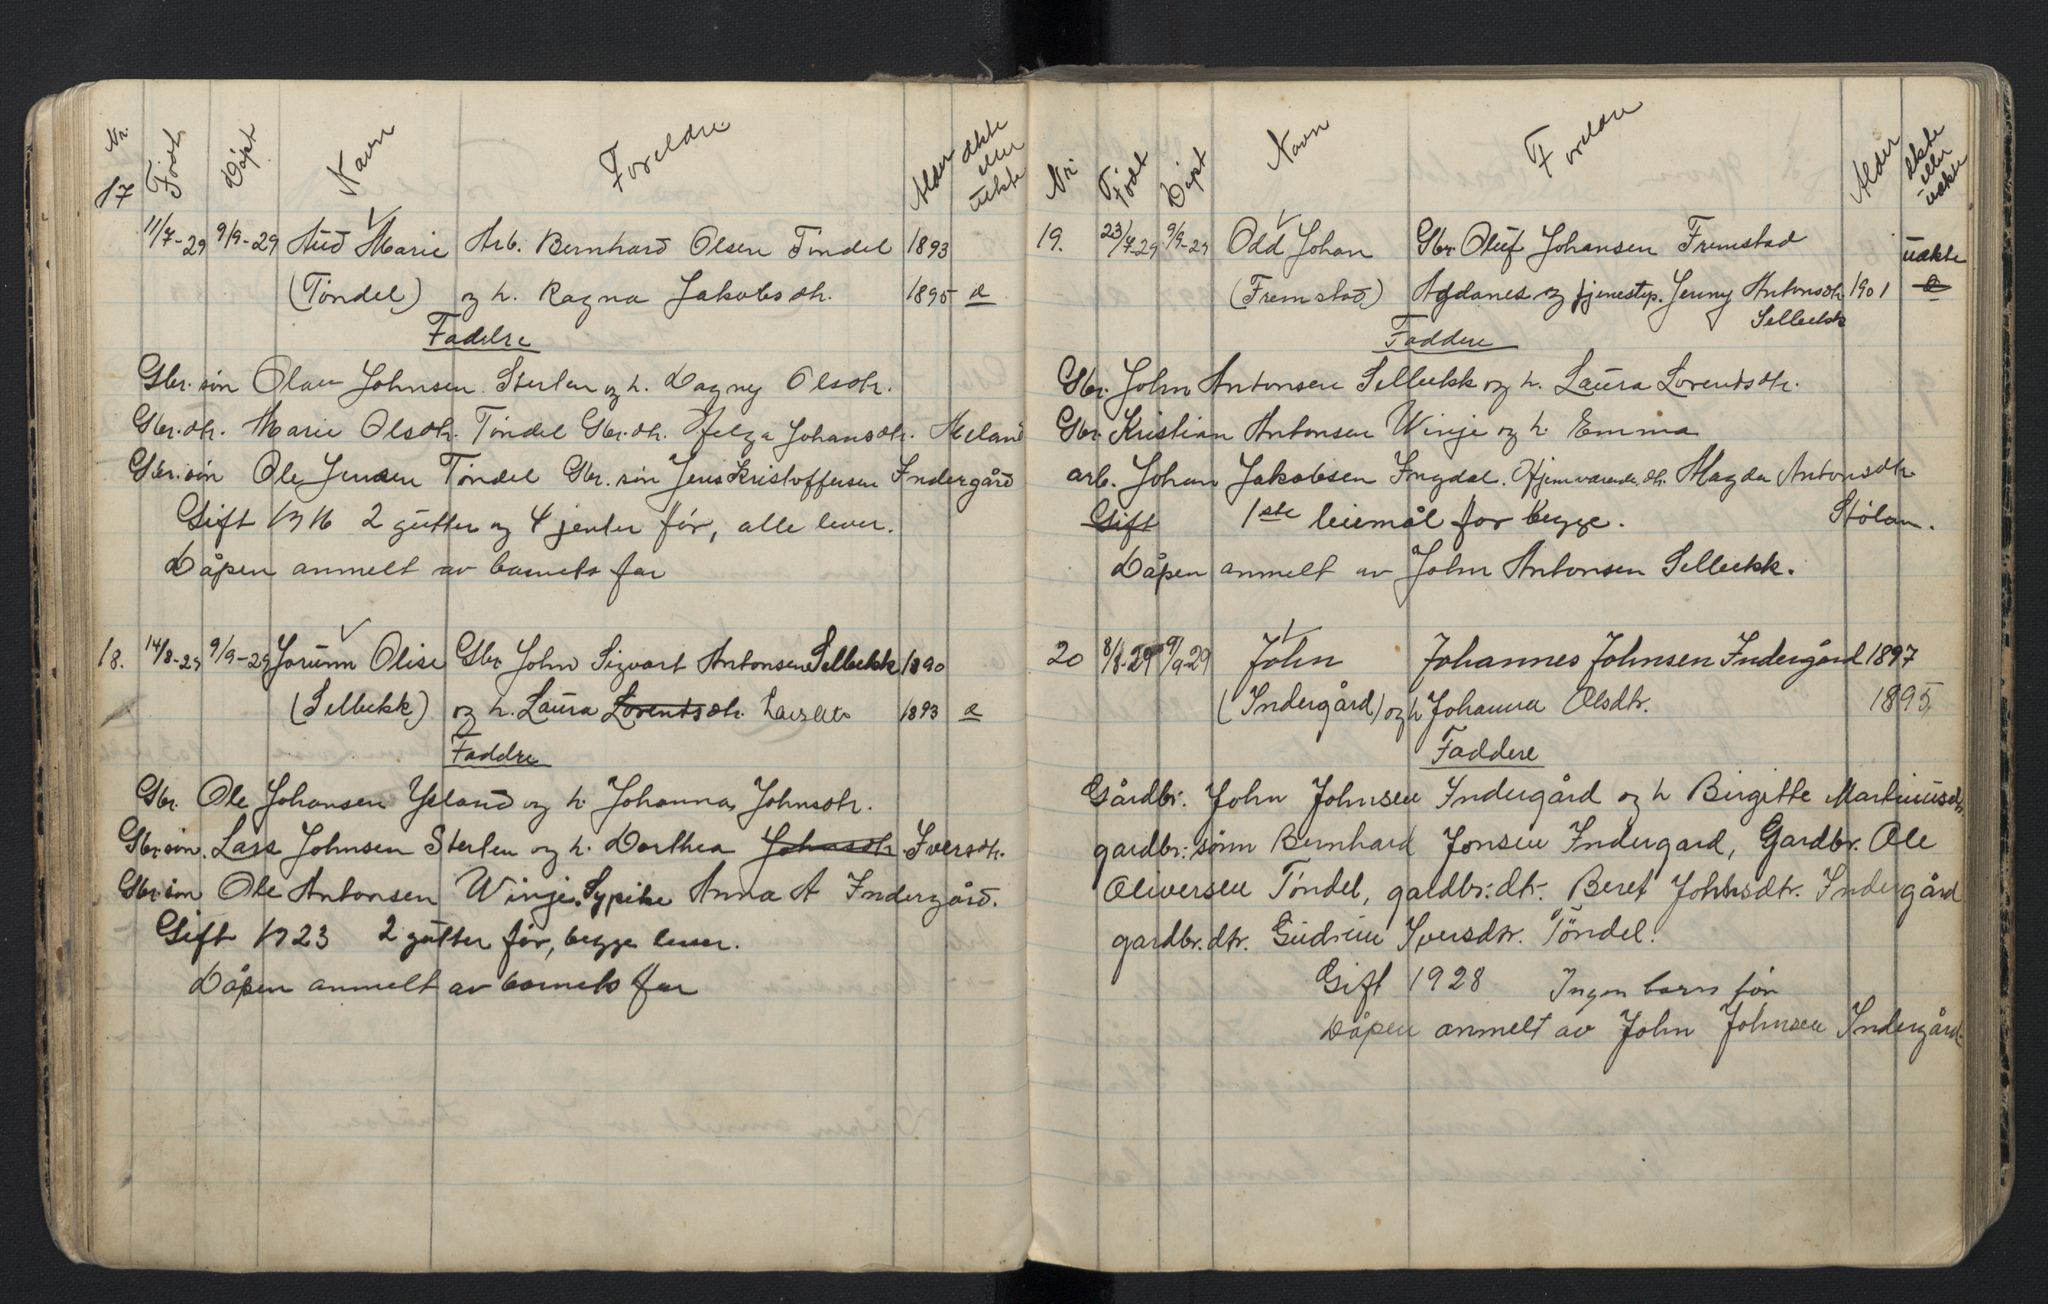 Nr. Født Døpt Navn Foreldre Alder ekte eller uekte
17
11/7-29 9/9-29 Aud Marie Arb. Bernhard Olsen Tøndel 1893
(Tøndel) og h. Ragna Jakobsdtr. 1895 e
Fadere
Gbr. søn Olav Johnsen Sterten og h. Dagny Olsdtr.
Gbr. dtr. Marie Olsdtr. Tøndel Gbr. dtr. Helga Johansdtr. Meland
Gbr. søn Ole Jensen Tøndel Gbr. søn Jens Kristoffersen Indergård
Gift 1916 2 gutter og 4 jenter før, alle lever.
Dåpen anmelt av barnets far
18. 14/8-29 9/9-29 Jorunn Olise Gbr John Sigvart Antonsen Selbekk 1890
(Selbekk) og h. Laura Lorentsdtr. 1893 e
Faddre
Gbr. Ole Johansen Ysland og h. Johanna Johnsdtr.
Gbr søn. Lars Johnsen Sterten og h. Dorthea Johnsdtr. Iversdtr.
Gbr søn Ole Antonsen Winje. Sypike Anna A Indergård.
Gift 1923 2 gutter før, begge lever.
Dåpen anmelt av barnets far
Nr Født Døpt Navn Foreldre Alder ekte eller uekte
19. 23/7-29 9/9-29 Odd Johan Gbr. Oluf Johansen Fremstad uekte
(Fremstad) Agdanes og tjenestep. Jenny Antonsdtr 1901 e
Selbekk
Faddere
Gbr. John Antonsen Selbekk og h. Laura Lorentsdtr.
Gbr Kristian Antonsen Winje og h. Emma
arb. Johan Jakobsen Ingdal. Hjemværende dtr. Magda Antonsdtr
Gift 1ste leiemål for begge. Stølan.
Dåpen anmelt av John Antonsen Selbekk.
20 8/8-29 9/9-29 John Johannes Johnsen Indergård 1897
(Indergård) og h Johanna Olsdtr. 1895
Faddere
Gårdbr. John Johnsen Indergård og h Birgitte Martinusdtr.
gardbr: sønn Bernhard Jonsen Indergard, Gardbr. Ole
Oliversen Tøndel, gardbr.: dtr. Beret Johnsdtr. Indergård
gardbr. dtr. Gudrun Iversdtr. Tøndel.
Gift 1928 Ingen barn før
Dåpen anmelt av John Johnsen Indergård.